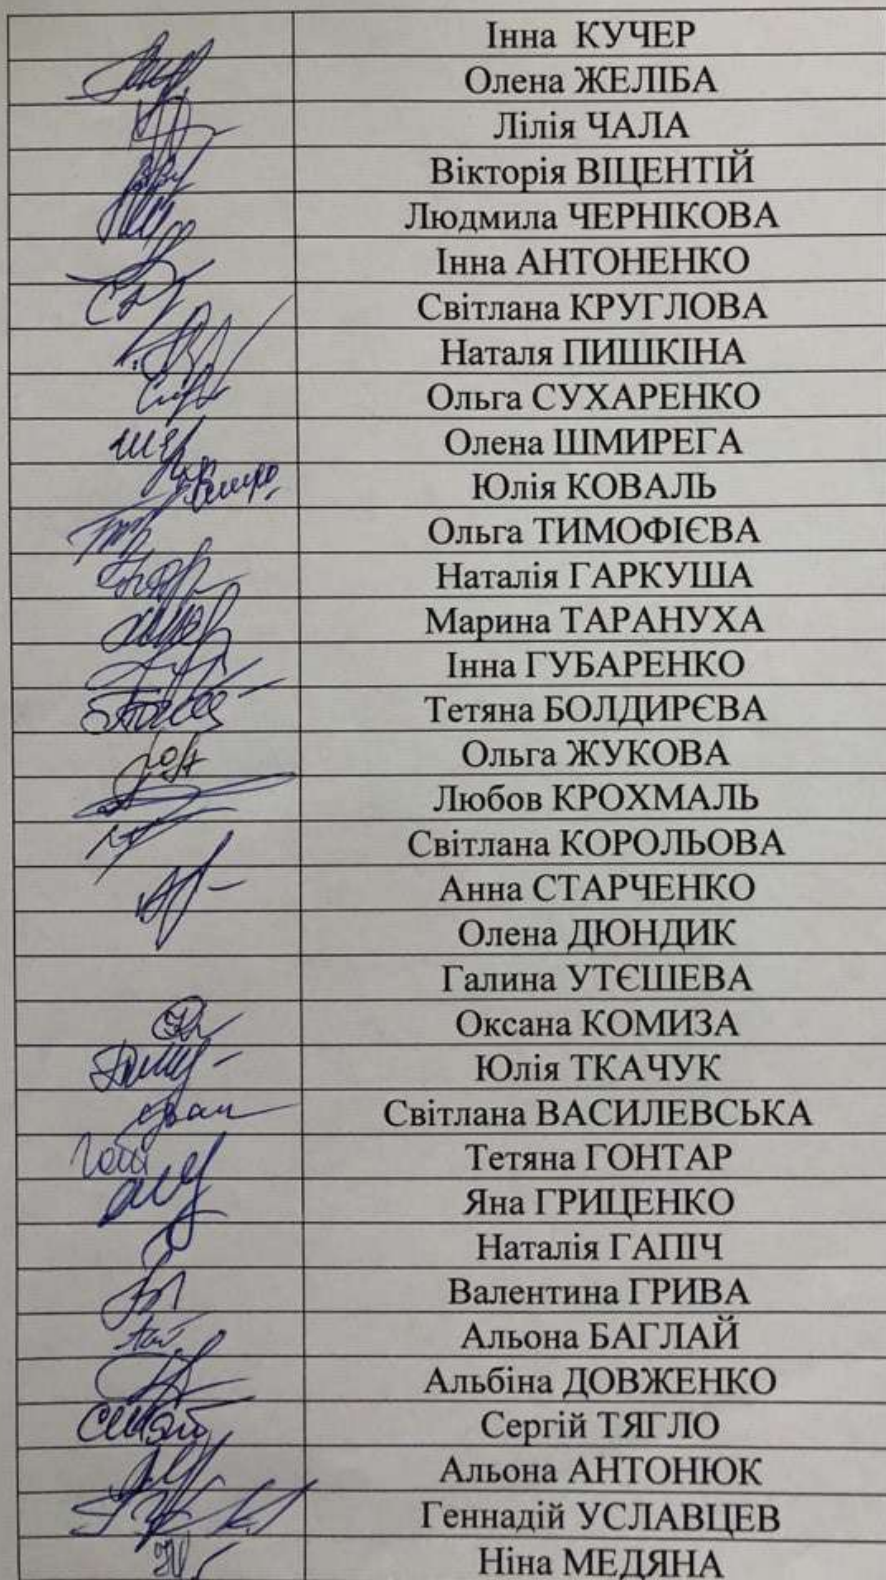 Інна КУЧЕР
Олена ЖЕЛІБА
Лілія ЧАЛА
Вікторія ВІЦЕНТІЙ
Людмила ЧЕРНІКОВА
Інна АНТОНЕНКО
Світлана КРУГЛОВА
Наталя ПИШКІНА
Ольга СУХАРЕНКО
Олена ШМИРЕГА
Юлія КОВАЛЬ
Ольга ТИМОФІЄВА
Наталія ГАРКУША
Марина ТАРАНУХА
Інна ГУБАРЕНКО
Тетяна БОЛДИРЄВА
Ольга ЖУКОВА
Любов КРОХМАЛЬ
Світлана КОРОЛЬОВА
Анна СТАРЧЕНКО
Олена ДЮНДИК
Галина УТЄШЕВА
Оксана КОМИЗА
Юлія ТКАЧУК
Світлана ВАСИЛЕВСЬКА
Тетяна ГОНТАР
Яна ГРИЦЕНКО
Наталія ГАПІЧ
Валентина ГРИВА
Альона БАГЛАЙ
Альбіна ДОВЖЕНКО
Сергій ТЯГЛО
Альона АНТОНЮК
Геннадій УСЛАВЦЕВ
Ніна МЕДЯНА